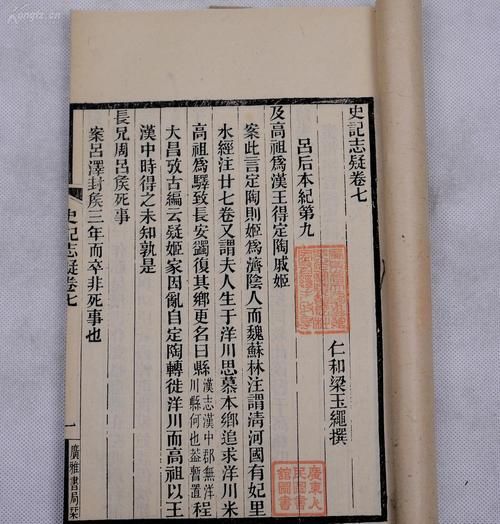 史記志疑卷七
呂后本紀第九
仁和梁玉繩撰
及高祖爲漢王得定陶戚姬
案此言定陶則姬爲濟陰人而魏蘇林注謂清河國有妃里
水經注廿七卷又謂夫人生于洋川思慕本鄉追求洋川米
高祖爲驛致長安蠲復其鄉更名曰縣漢志漢中郡無洋川縣何也葢暫置程
大昌攷古編云疑姬家因亂自定陶轉徙洋川而高祖以王
漢中時得之未知孰是
長兄周呂矦死事
案呂澤封矦三年而卒非死事也
史記志疑卷七
一
廣雅書局栞
廣東人民圖書館圖書
kongfz.cn